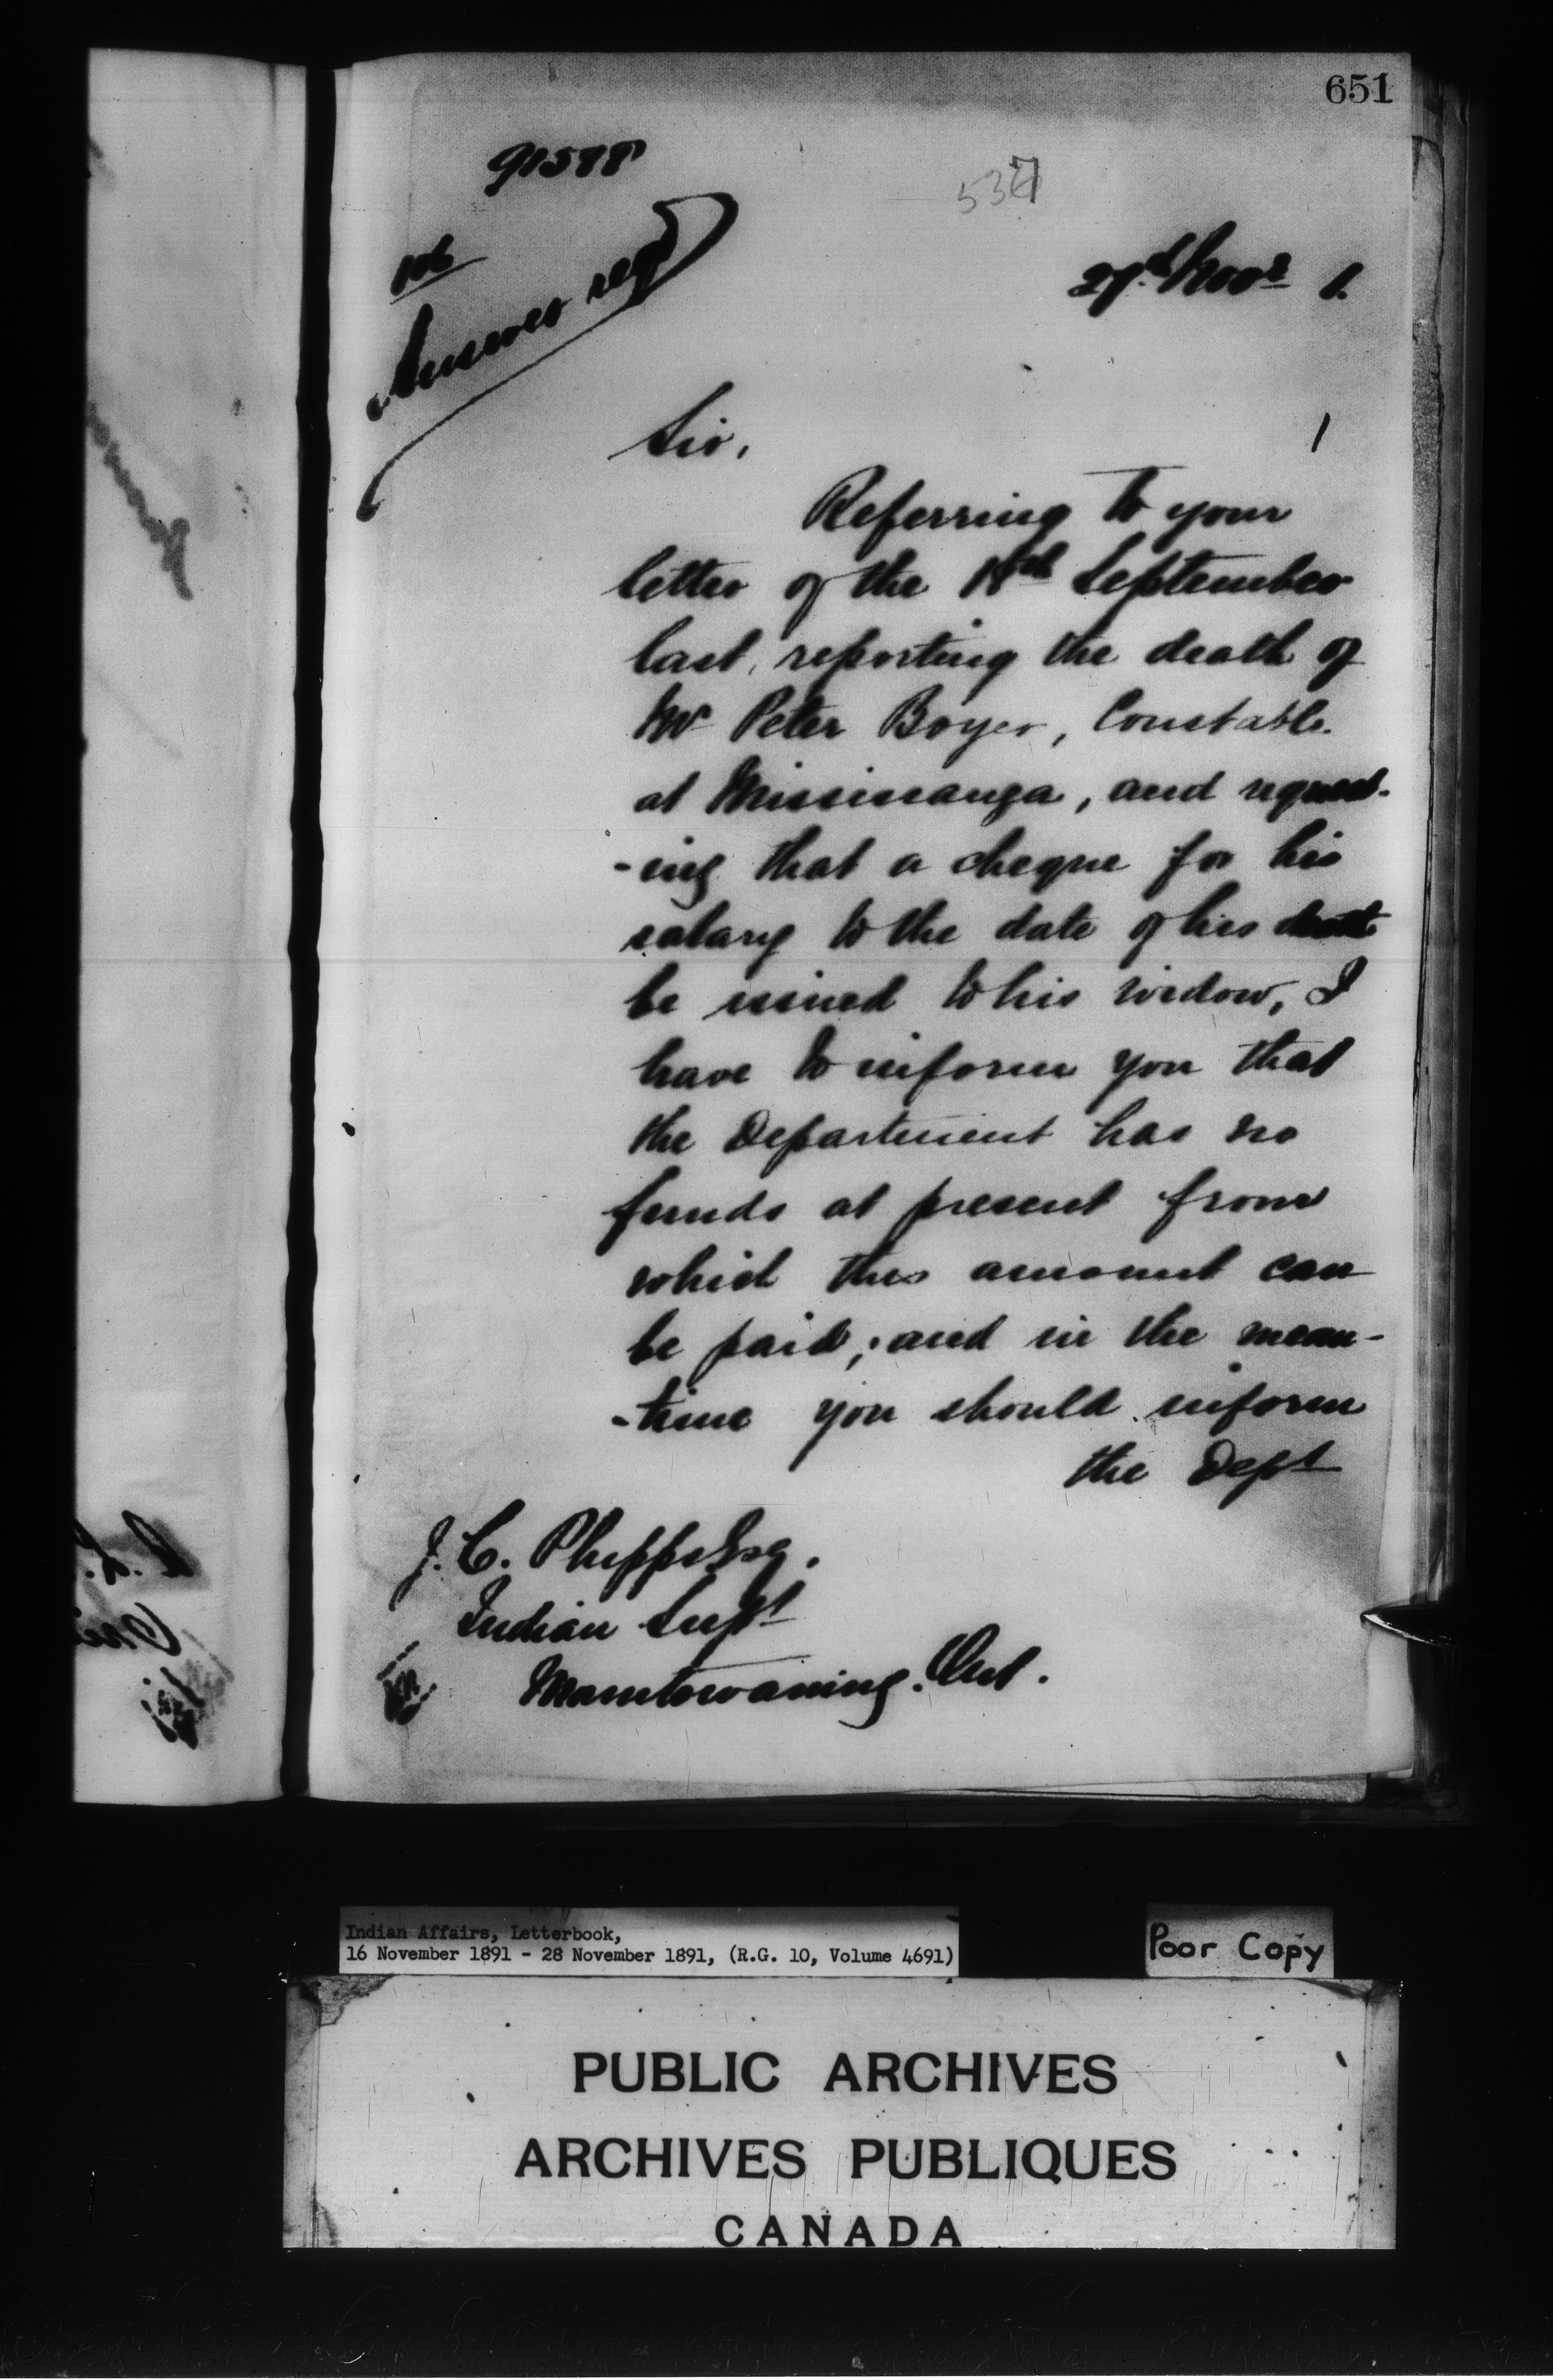 651
91588
537
106
Answer reqd
27th Novr 1.
Sir,
Referring to your
letter of the 18th September
last, reporting the death of
Mr Peter Boyer, Constable
at Mississauga, and request-
-ing that a cheque for his
salary to the date of his death
be issued to his widow, I
have to inform you that
the Department has no
funds at present from
which this amount can
be paid; and in the mean-
-time you should inform
the Dept
J. C. Phipps Esq.
Indian Supt
Manitowaning. Ont.
Indian Affairs, Letterbook,
16 November 1891 - 28 November 1891, (R.G. 10, Volume 4691)
Poor Copy
PUBLIC ARCHIVES
ARCHIVES PUBLIQUES
CANADA